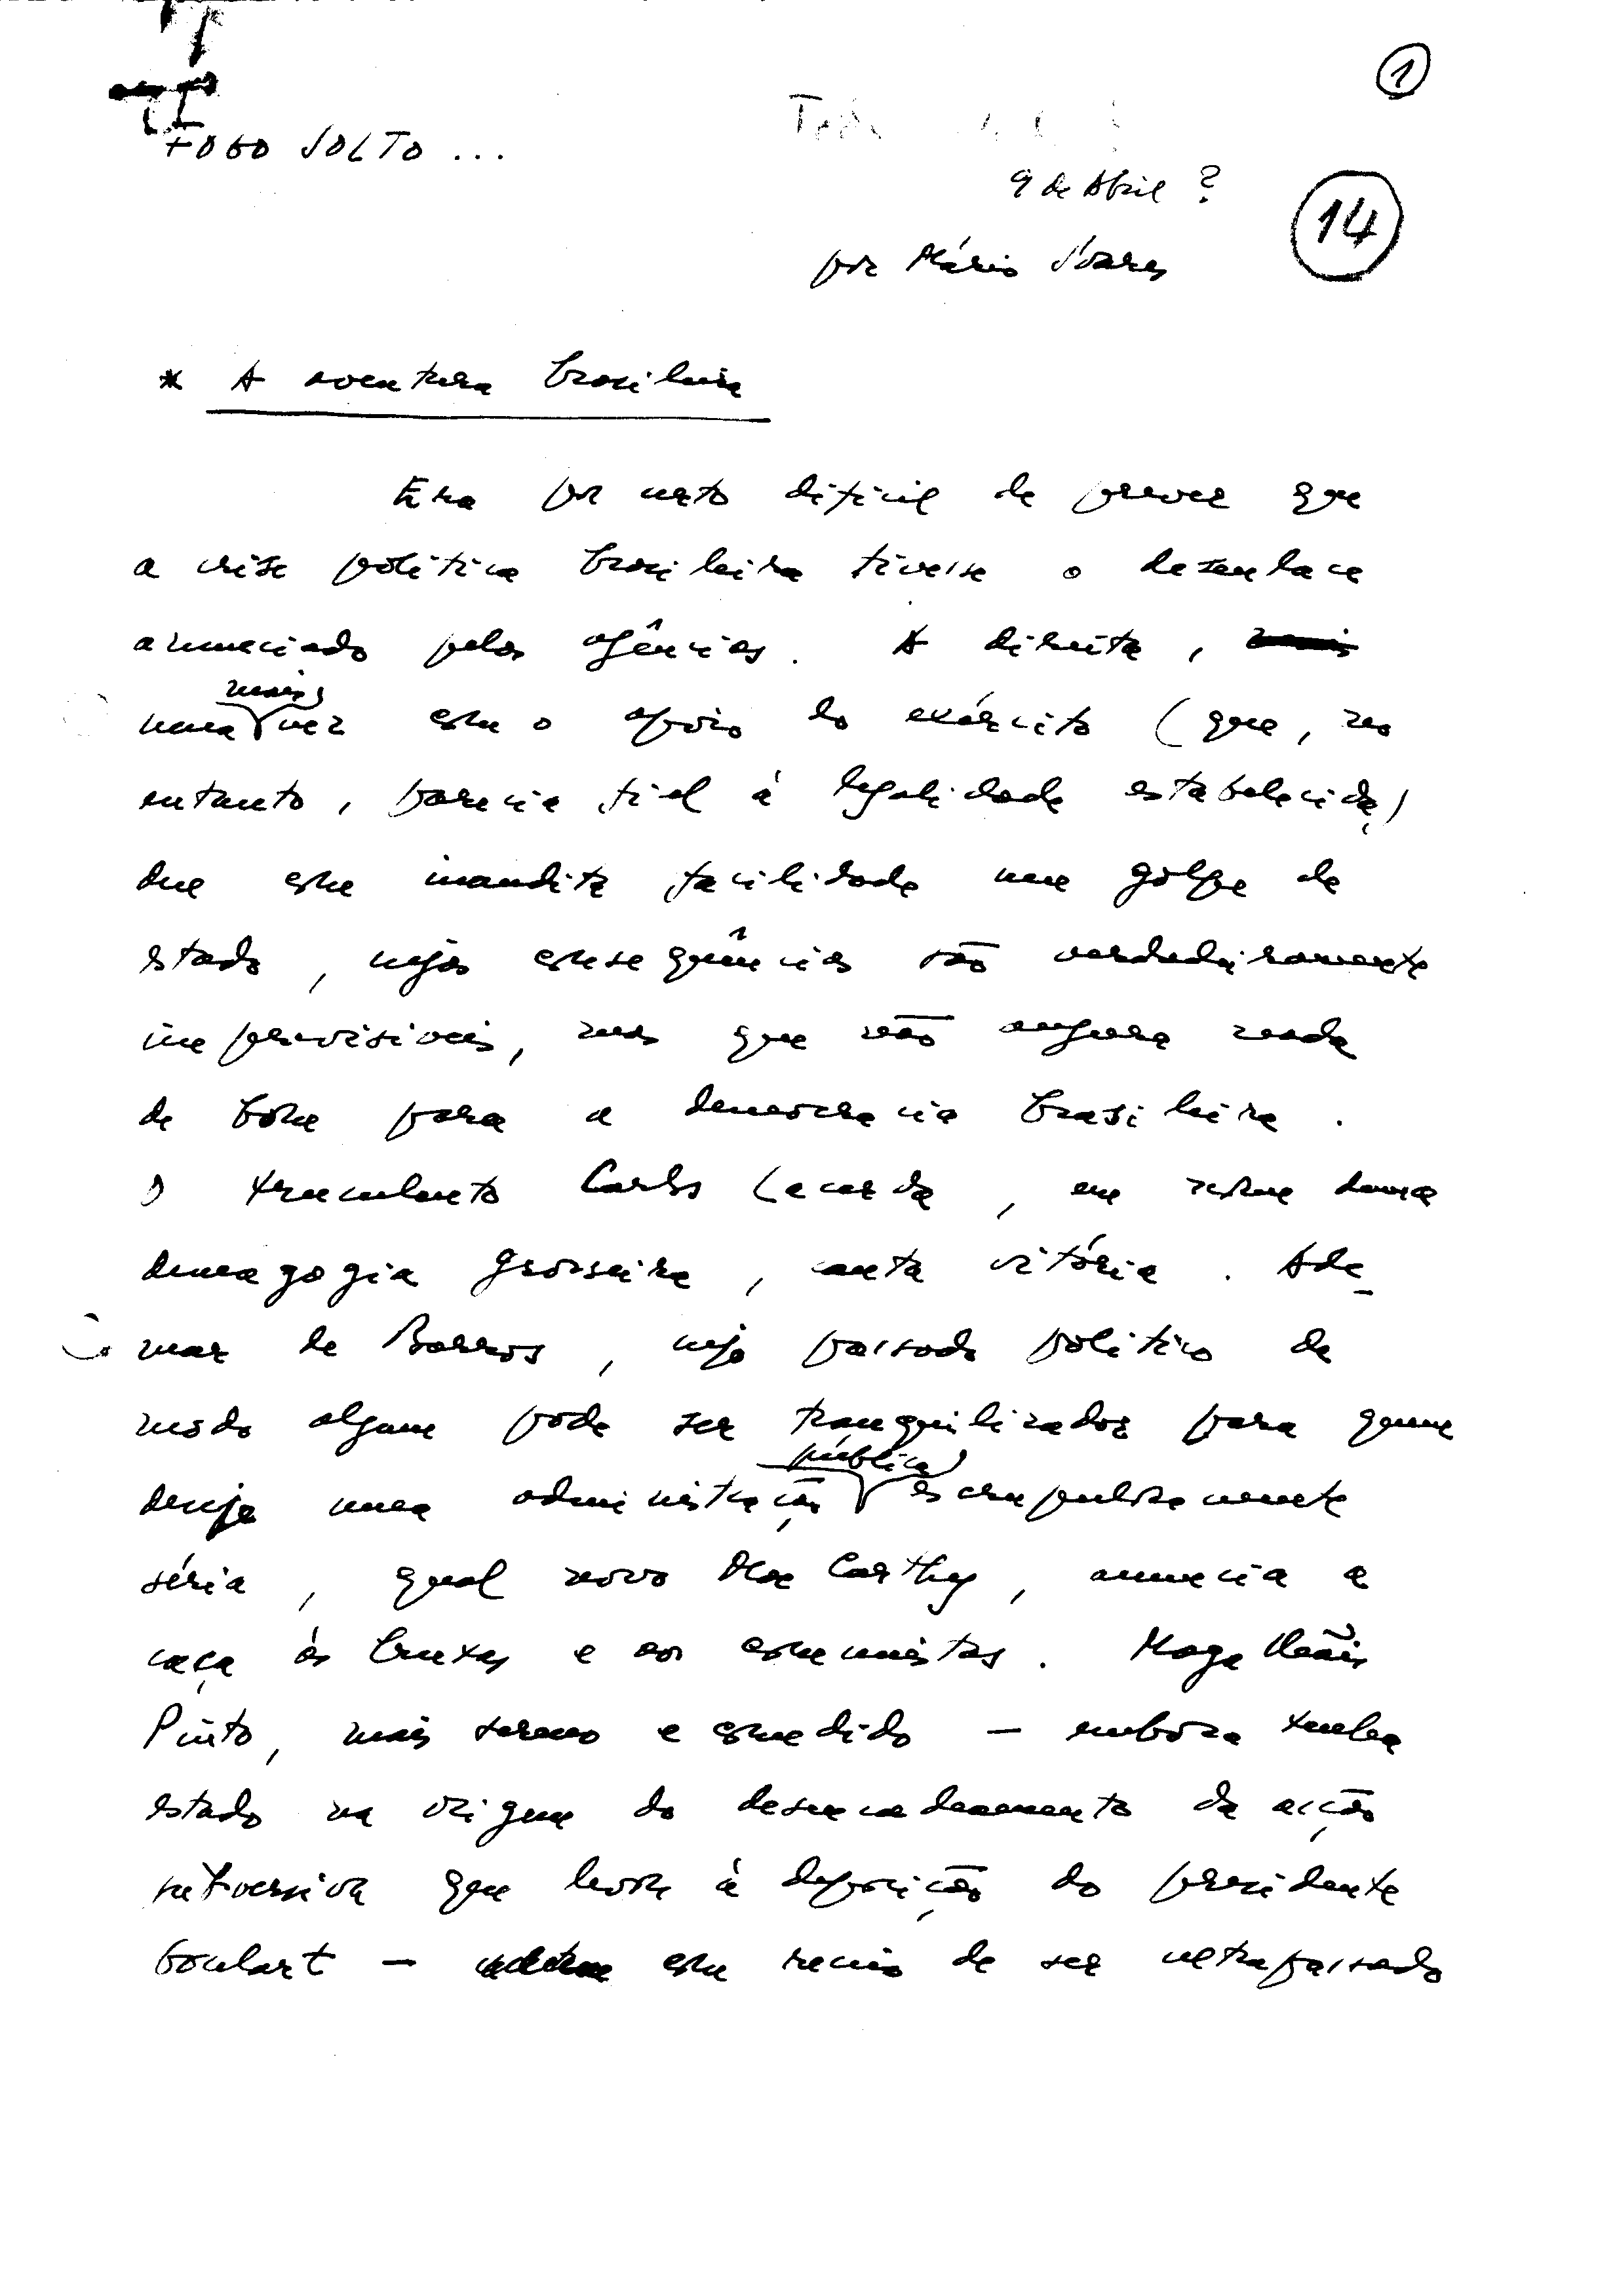 1
FOGO SOLTO ...
9 de Abril ?
14
por Mário Soares
* A aventura brasileira
Era por certo difícil de prever que
a crise política brasileira tivesse o desenlace
anunciado pelas agências. A direita,
uma mais vez com o apoio do exército (que, no
entanto, parecia fiel à legalidade estabelecida)
deu com inaudita facilidade um golpe de
estado, cujas consequências são verdadeiramente
imprevisíveis, mas que não augura nada
de bom para a democracia brasileira.
O truculento Carlos Lacerda, em
demagogia grosseira, canta vitória. Ade-
mar de Barros, cujo passado político de
modo algum pode ser tranquilizador para quem
deseja uma administração pública escrupulosamente
séria, qual novo Mac Carthy, anuncia a
caça às bruxas e aos comunistas. Magalhães
Pinto, mais sereno e comedido — embora tenha
estado na origem do desencadeamento da acção
subversiva que levou à deposição do presidente
Goulart — com receio de ser ultrapassado